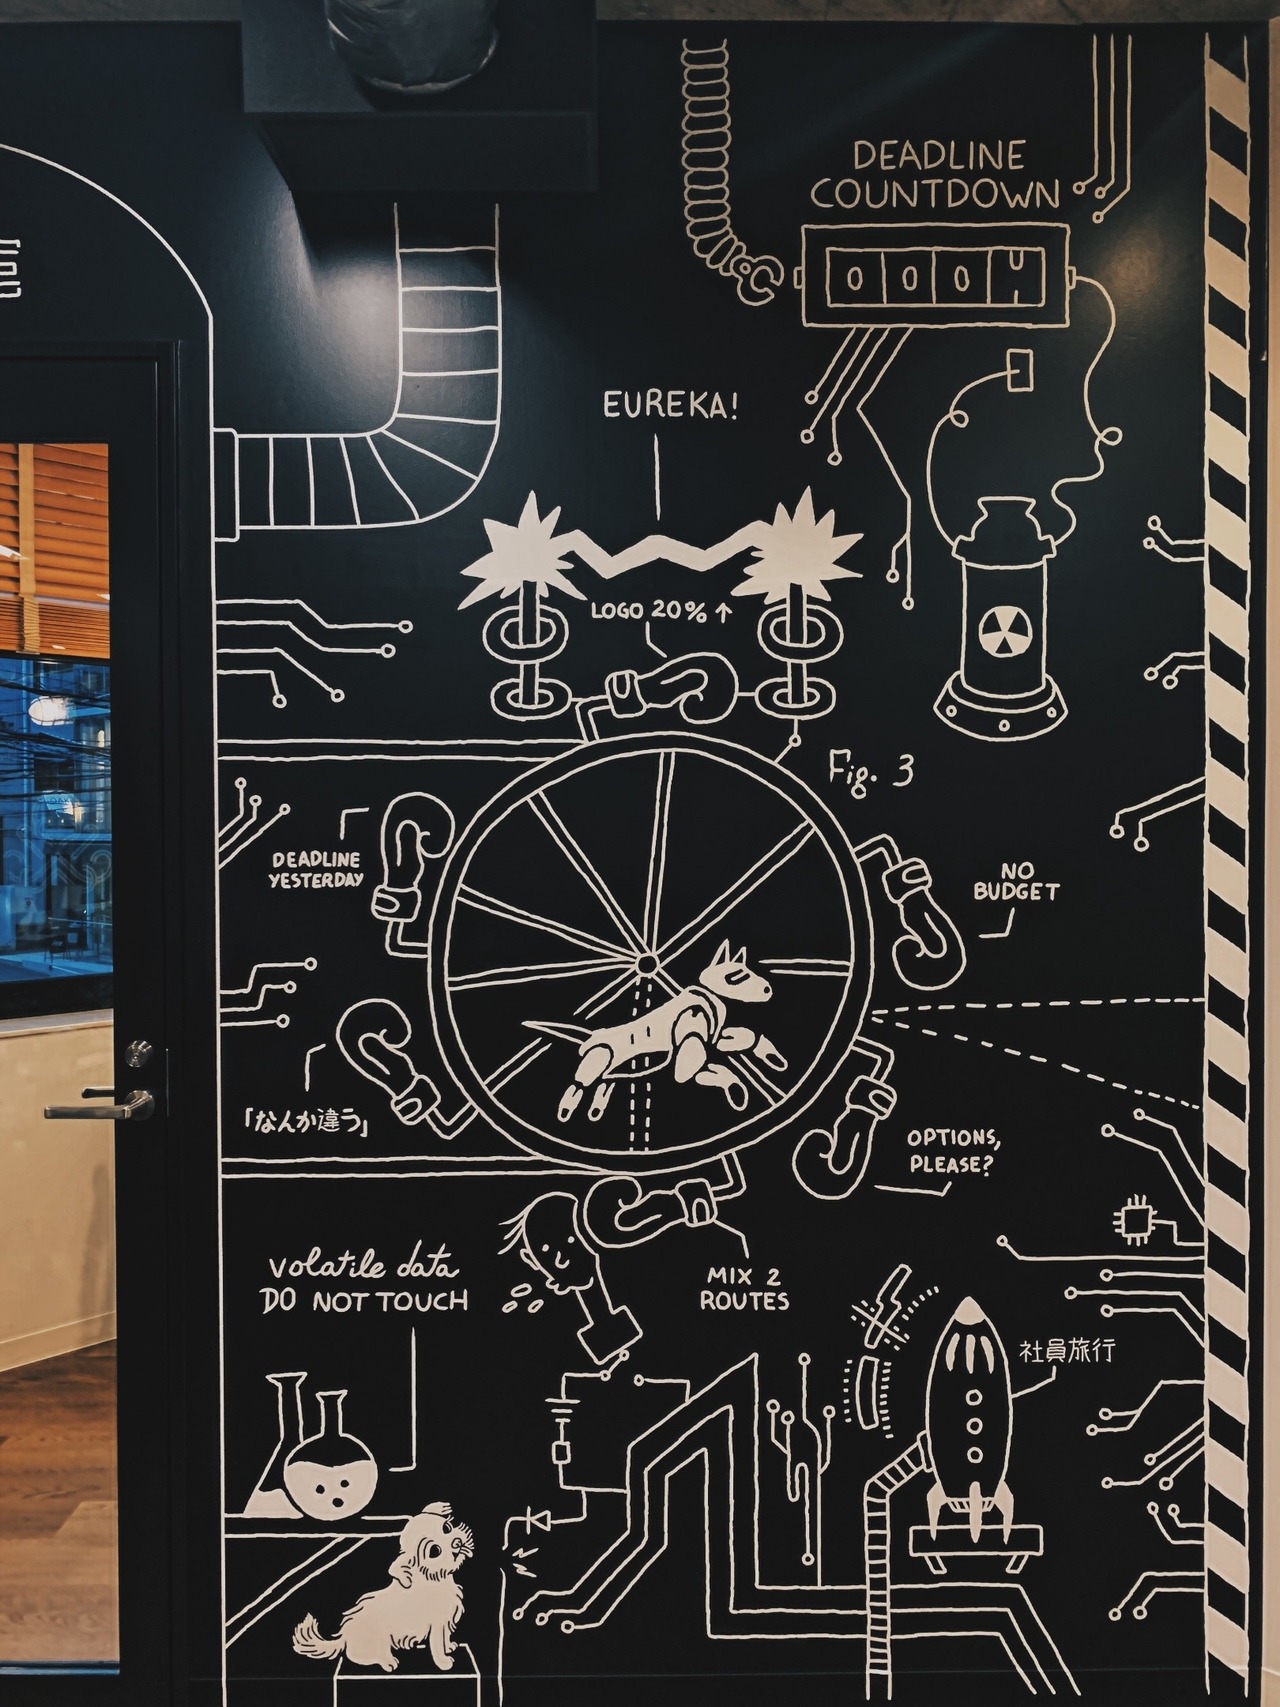 DEADLINE
COUNTDOWN
000
EUREKA!
LOGO 20% ↑
Fig. 3
DEADLINE
YESTERDAY
NO
BUDGET
「なんか違う」
OPTIONS,
PLEASE?
volatile data
DO NOT TOUCH
MIX 2
ROUTES
社員旅行